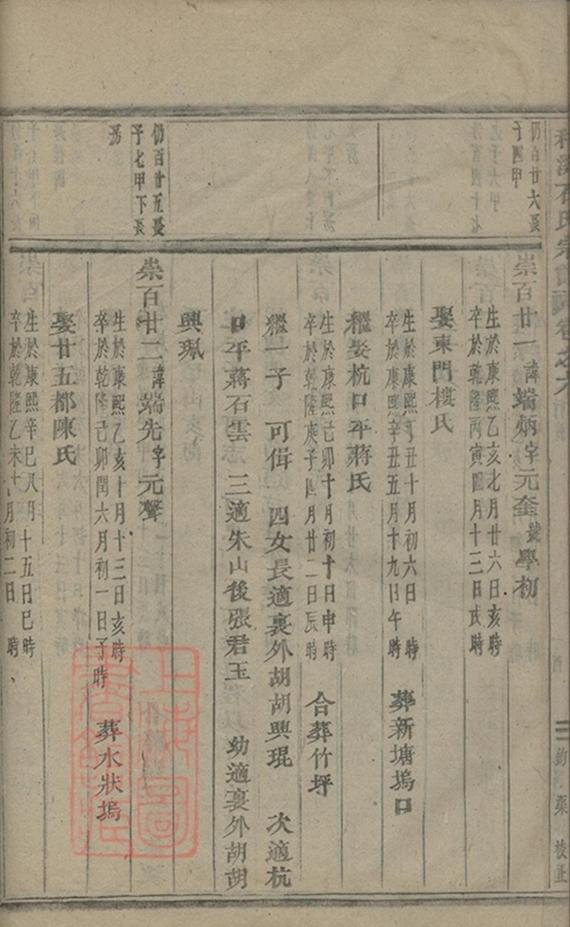 石氏宗譜卷之六
仍百廿六長
子四甲
崇百廿一諱端炳字元奎號學初
生於康熙乙亥七月廿六日亥時
卒於乾隆丙寅四月十三日戌時
娶東門樓氏
生於康熙丁丑十月初六日時
卒於康熙辛丑五月十九日午時
葬新塘塢口
繼娶杭口平蔣氏
生於康熙己卯十月初十日申時
卒於乾隆庚子四月廿二日辰時
合葬竹坪
繼一子 可偮 四女長適裏外胡胡興琨 次適杭
口平蔣石雲 三適朱山後張君玉 幼適裏外胡胡
興珮
仍百廿五長
子七甲下長
房
崇百廿二諱端先字元聲
生於康熙乙亥十月十三日亥時
卒於乾隆己卯閏六月初一日子時
葬水狀塢
娶廿五都陳氏
生於康熙辛巳八月十五日巳時
卒於乾隆乙未十月初二日時
校正